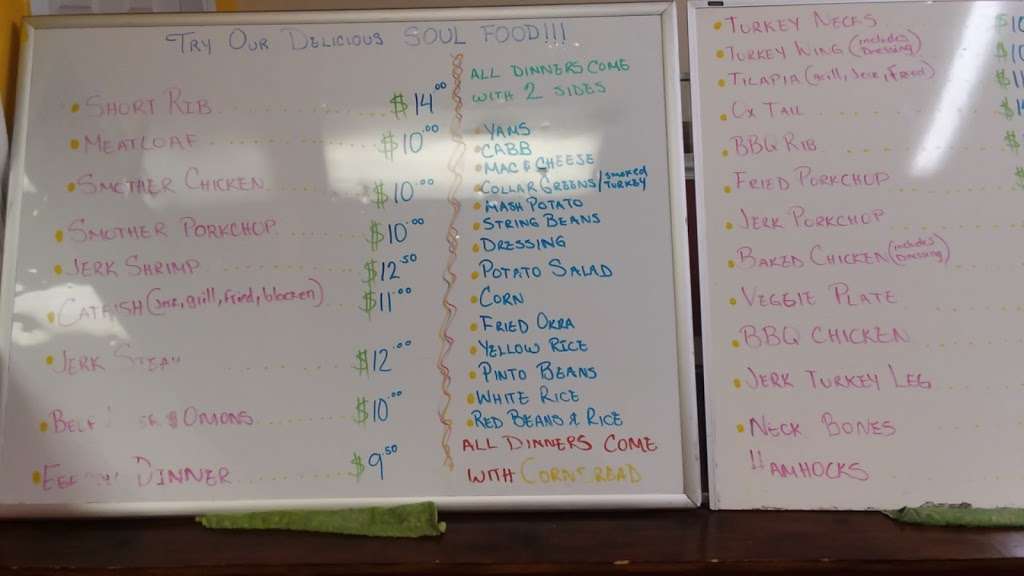 TRY OUR DELICIOUS SOUL FOOD!!!
SHORT RIB $14.00
MEATLOAF $10.00
SMOTHER CHICKEN $10.00
SMOTHER PORKCHOP $10.00
JERK SHRIMP $12.50
CATFISH (Jerk, grill, fried, blacken) $11.00
JERK STEAK $12.00
& ONIONS $10.00
DINNER $9.50
ALL DINNERS COME
WITH 2 SIDES
YAMS
CABB
MAC & CHEESE
COLLAR GREENS/SMOKED TURKEY
MASH POTATO
STRING BEANS
DRESSING
POTATO SALAD
CORN
FRIED OKRA
YELLOW RICE
PINTO BEANS
WHITE RICE
RED BEANS & RICE
ALL DINNERS COME
WITH CORNBREAD
TURKEY NECKS
TURKEY WING (includes Dressing)
TILAPIA (Grill, Jerk, Fried)
OX TAIL
BBQ RIB
FRIED PORKCHOP
JERK PORKCHOP
BAKED CHICKEN (includes Dressing)
VEGGIE PLATE
BBQ CHICKEN
JERK TURKEY LEG
NECK BONES
HAMHOCKS